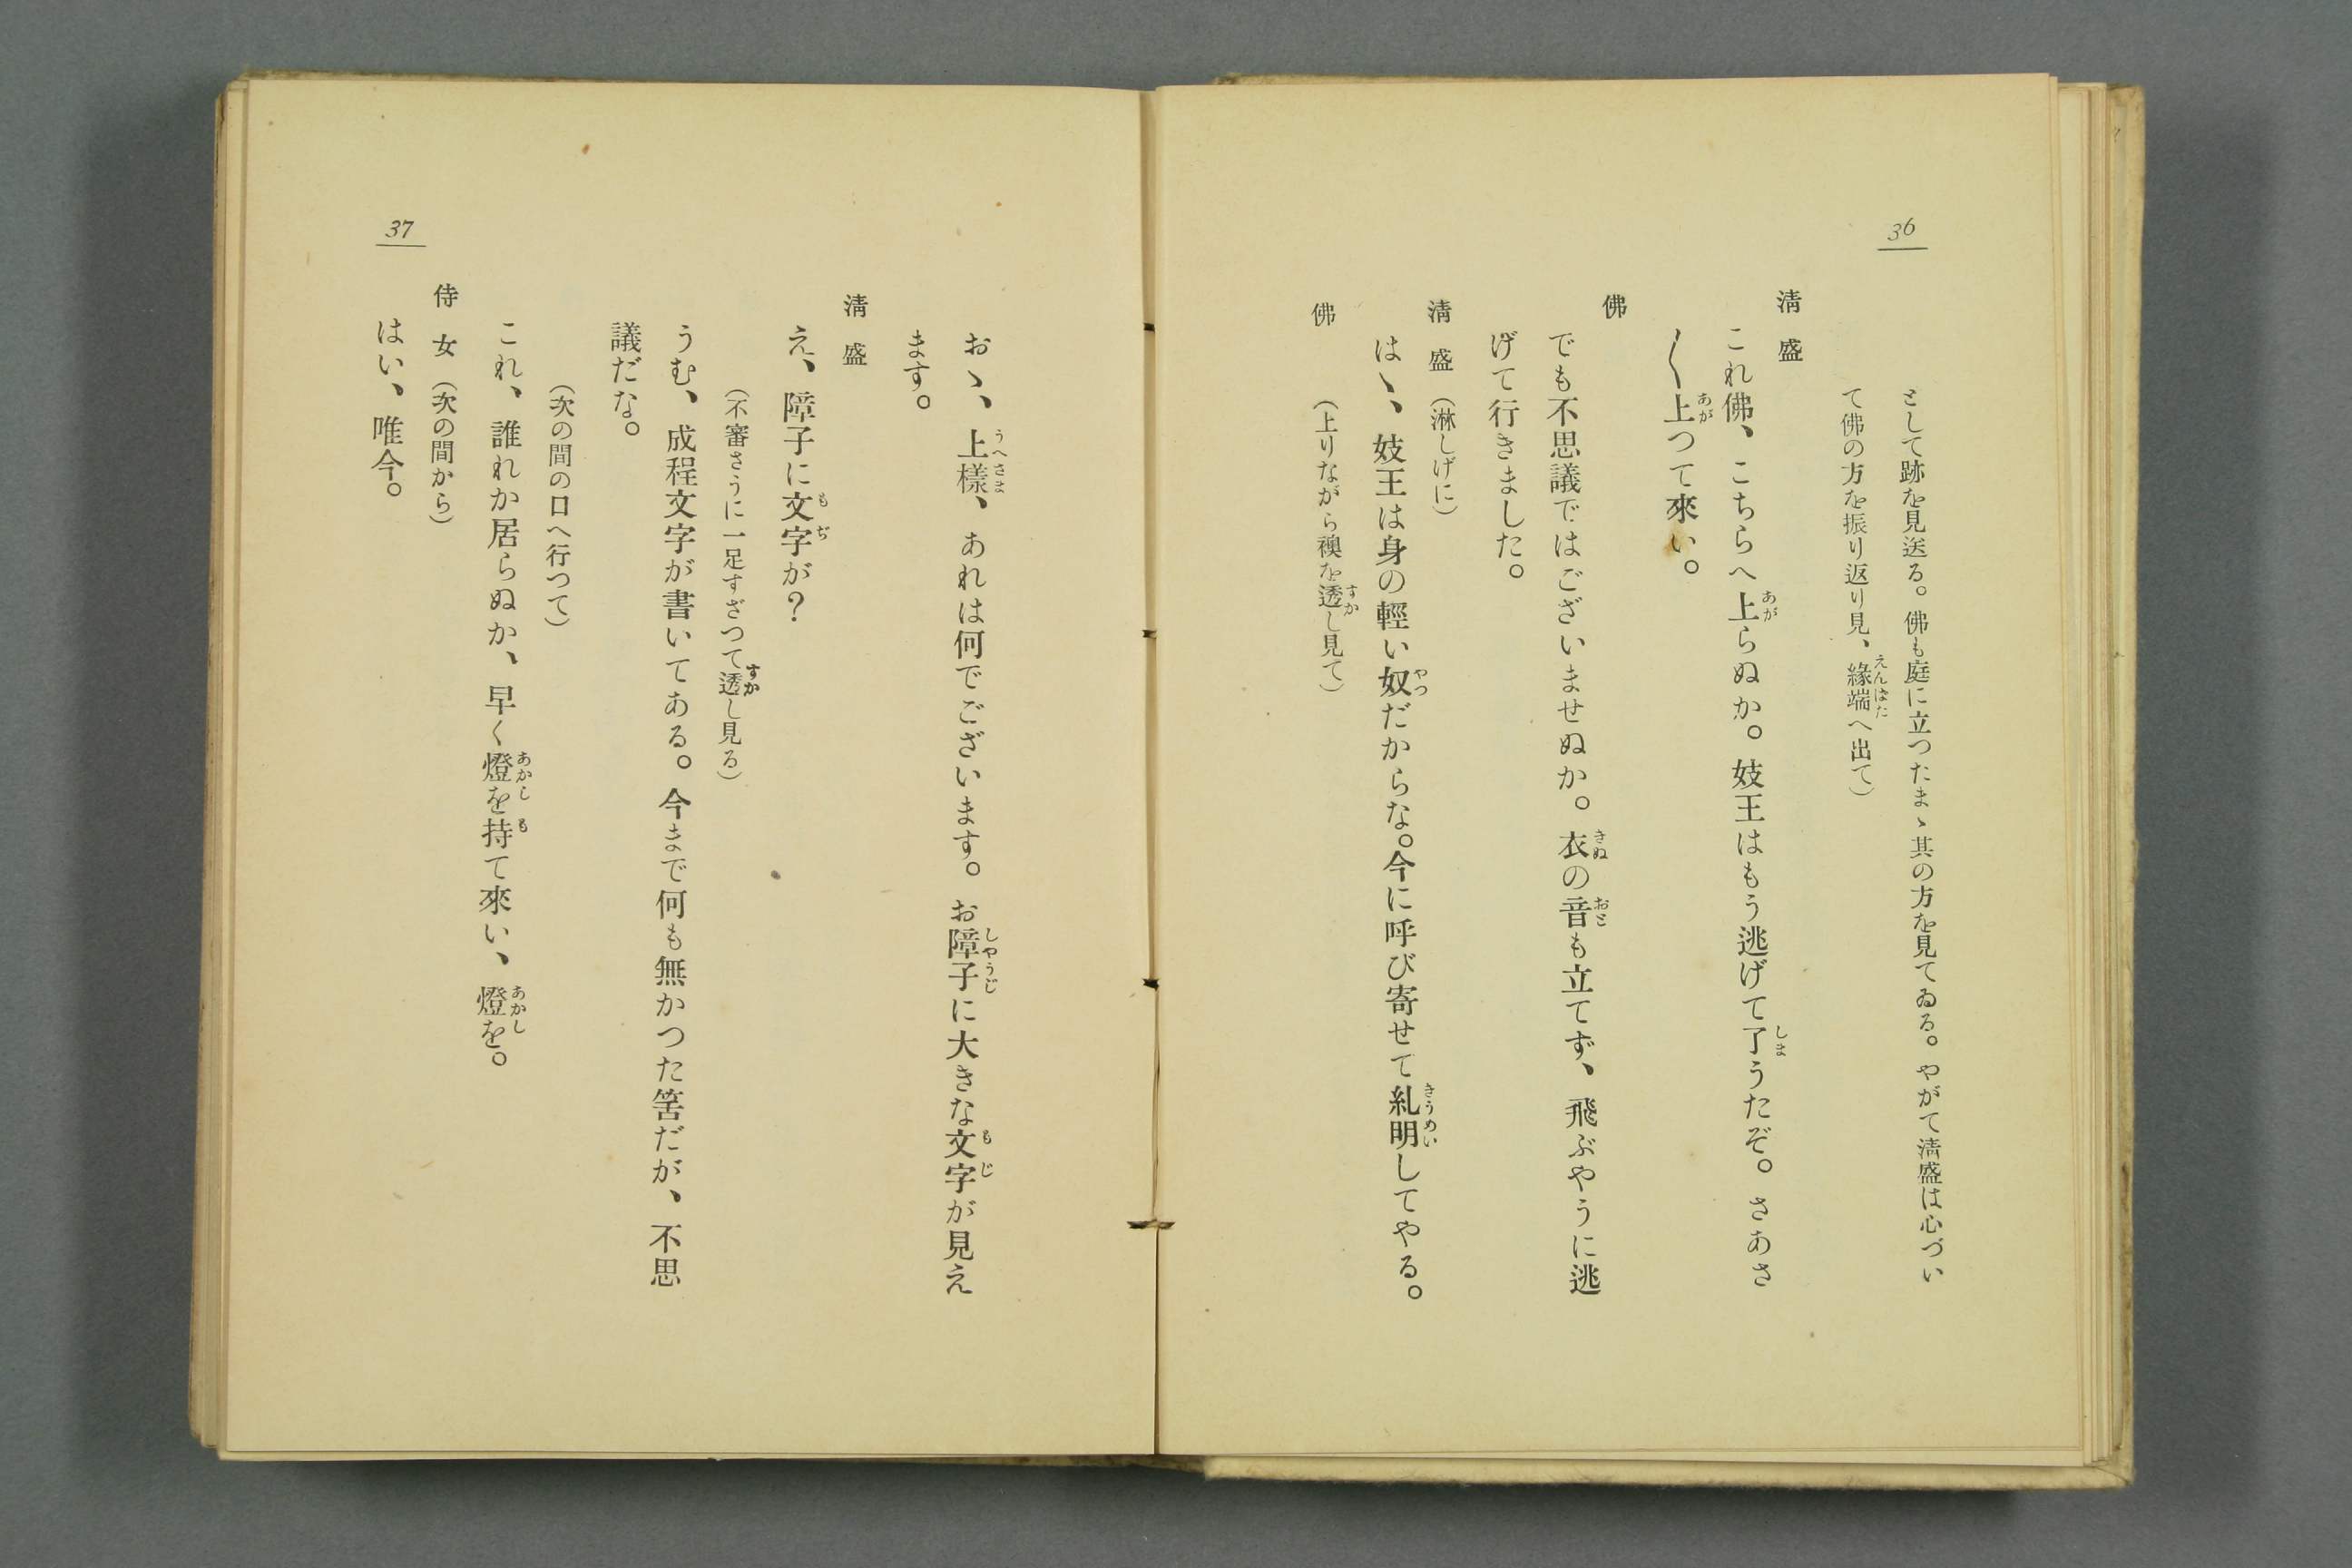 36
として跡を見送る。佛も庭に立つたまゝ其の方を見てゐる。やがて淸盛は心づい
て佛の方を振り返り見、緣端へ出て）
淸盛
これ佛、こちらへ上らぬか。妓王はもう逃げて了うたぞ。さあさ
〱上つて來い。
佛
でも不思議ではございませぬか。衣の音も立てず、飛ぶやうに逃
げて行きました。
淸盛（淋しげに）
はゝ、妓王は身の輕い奴だからな。今に呼び寄せて糺明してやる。
佛（上りながら襖を透し見て）
37
おゝ、上樣、あれは何でございます。お障子に大きな文字が見え
ます。
淸盛
え、障子に文字が？
（不審さうに一足すざつて透し見る）
うむ、成程文字が書いてある。今まで何も無かつた筈だが、不思
議だな。
（次の間の口へ行つて）
これ、誰れか居らぬか、早く燈を持て來い、燈を。
侍女（次の間から）
はい、唯今。